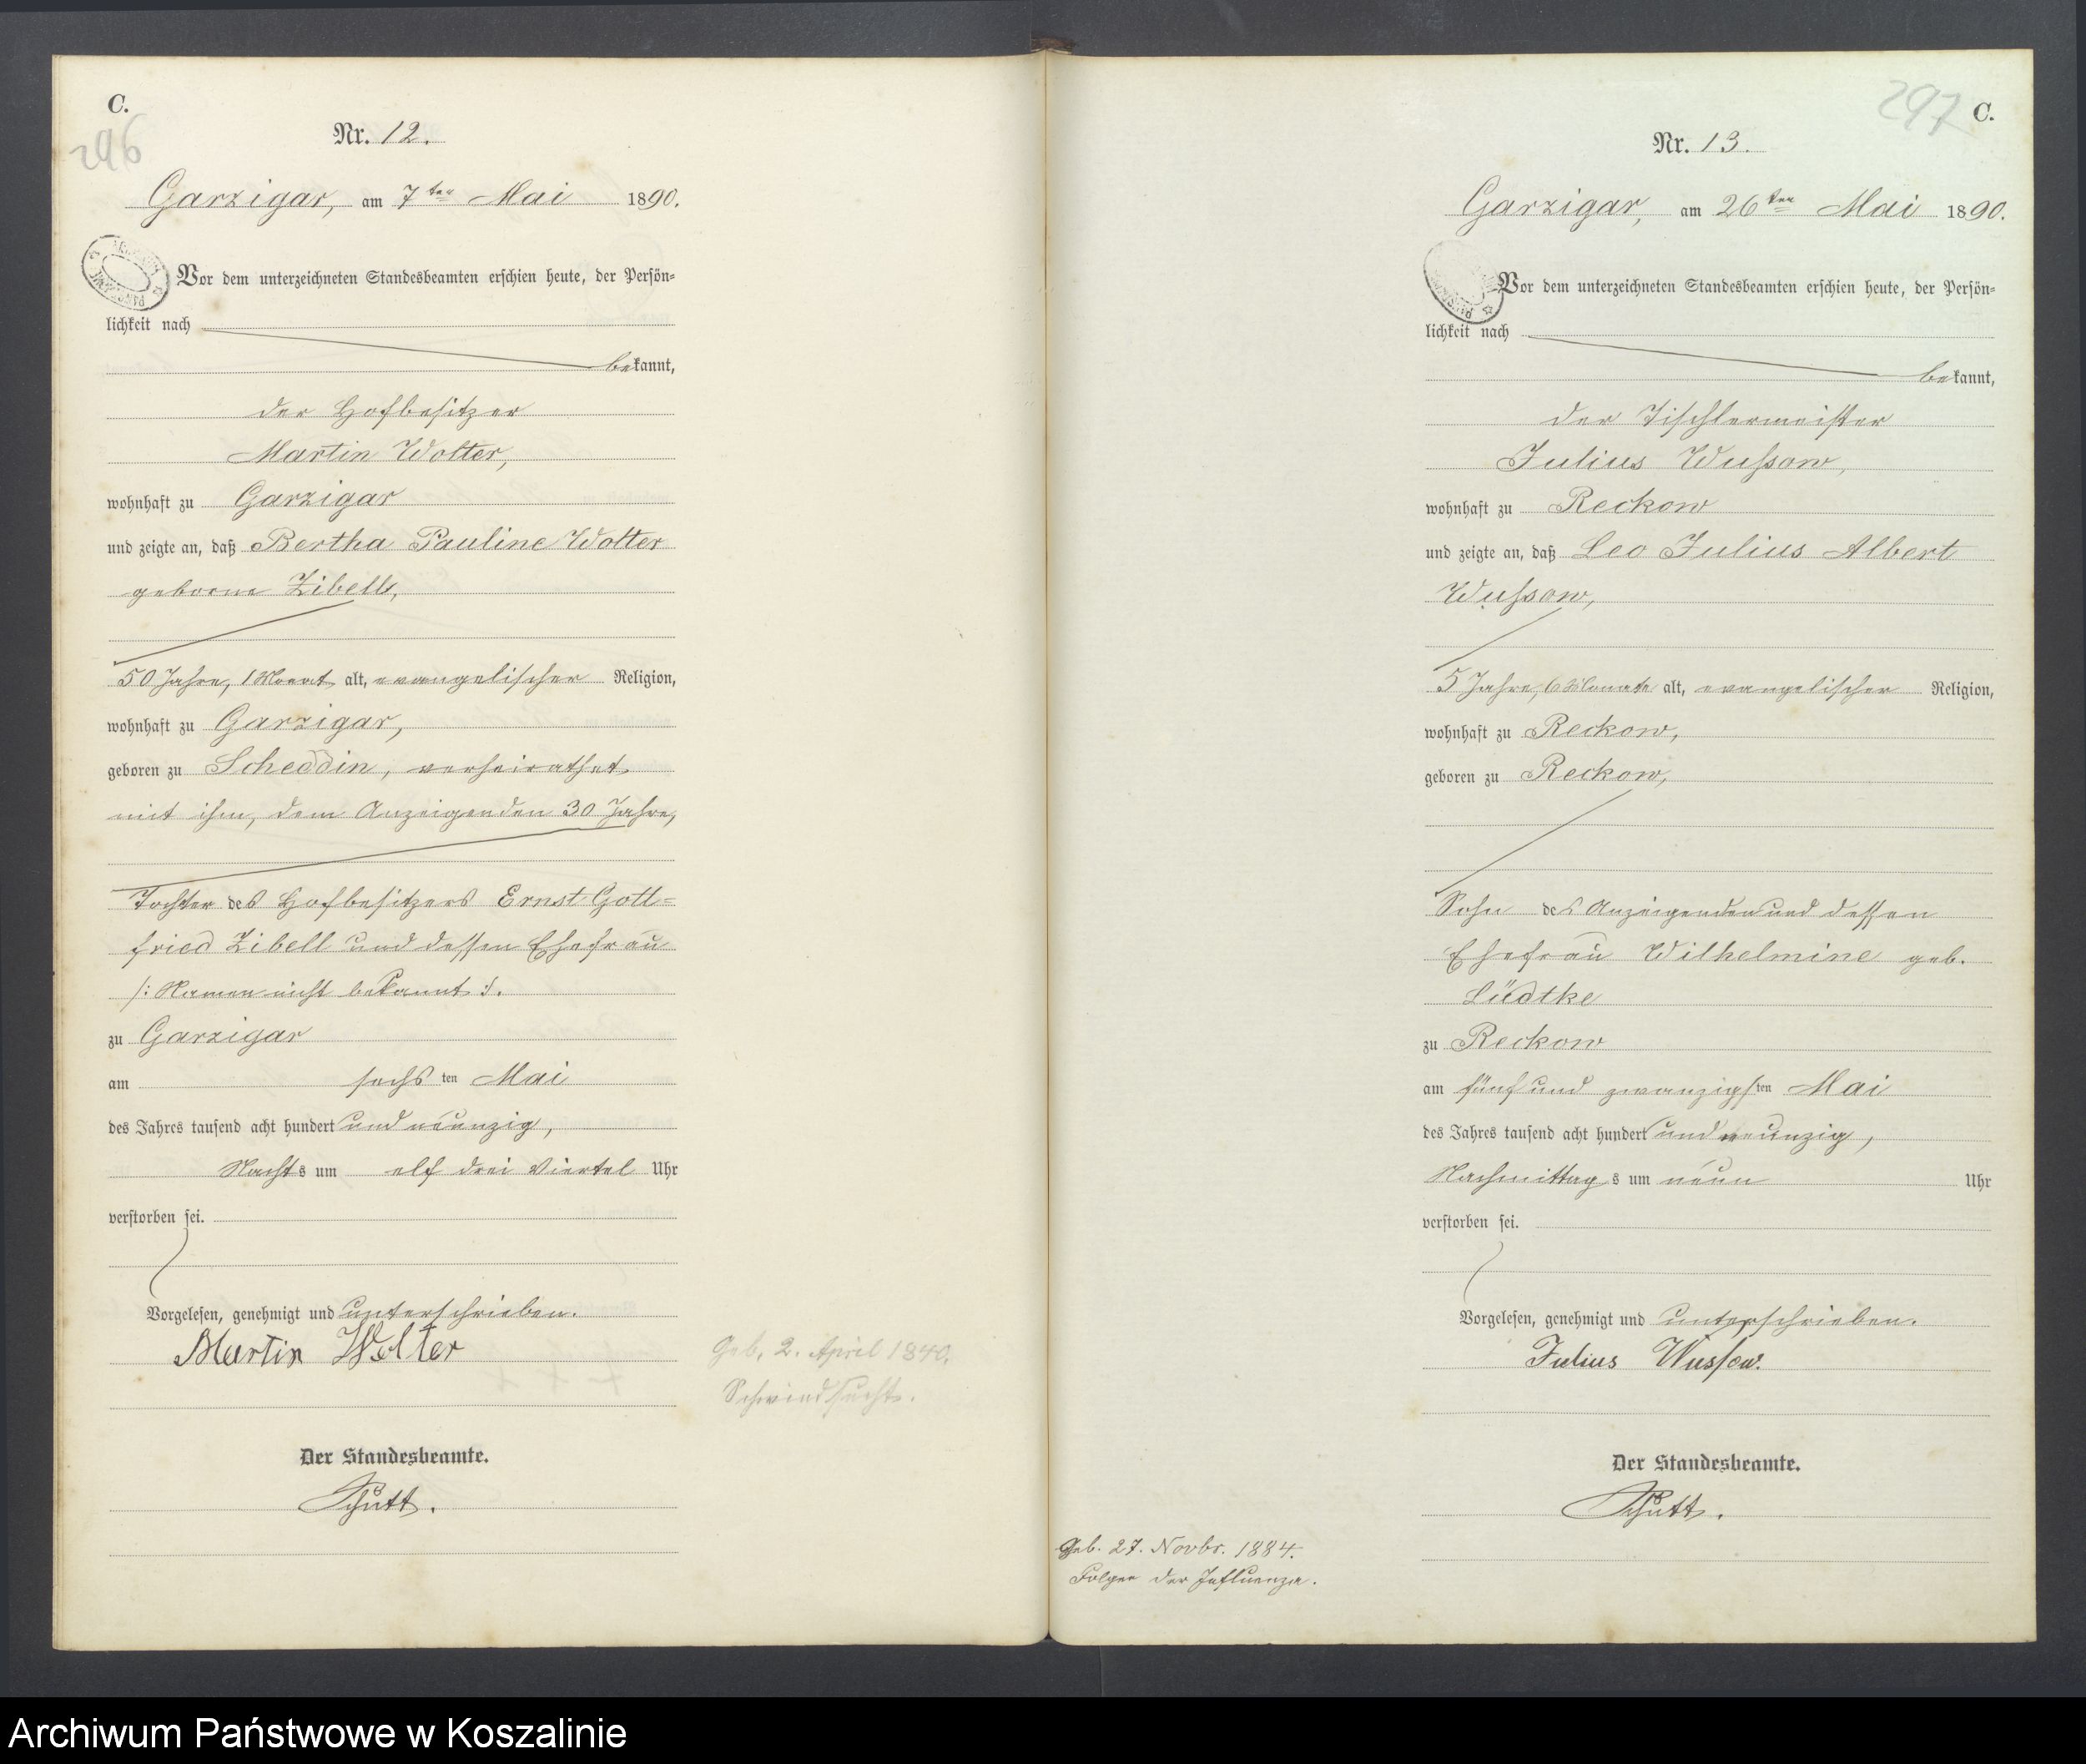 C.
296
Nr. 12.
Garzigar, am 7ten Mai 1890.
Vor dem unterzeichneten Standesbeamten erschien heute, der Persön-
lichkeit nach
bekannt,
der Hofbesitzer
Martin Wolter,
wohnhaft zu Garzigar
und zeigte an, daß Bertha Pauline Wolter
geborne Zibell,
50 Jahre, 1 Monat alt, evangelischer Religion,
wohnhaft zu Garzigar,
geboren zu Scheddin, verheirathet
mit ihm, dem Anzeigenden 30 Jahre,
Tochter des Hofbesitzers Ernst Gott=
fried Zibell und dessen Ehefrau
/: Namen nicht bekannt :/.
zu Garzigar
am sechs ten Mai
des Jahres tausend acht hundert und neunzig,
Nachts um elf drei Viertel Uhr
verstorben sei.
Vorgelesen, genehmigt und unterschrieben.
Martin Wolter
Geb. 2. April 1840.
Schwindsucht.
Der Standesbeamte.
Schütt.
297
C.
Nr. 13.
Garzigar, am 26ten Mai 1890.
Vor dem unterzeichneten Standesbeamten erschien heute, der Persön-
lichkeit nach
bekannt,
der Tischlermeister
Julius Wussow,
wohnhaft zu Reckow
und zeigte an, daß Leo Julius Albert
Wussow,
5 Jahre, 6 Monate alt, evangelischer Religion,
wohnhaft zu Reckow,
geboren zu Reckow,
Sohn des Anzeigenden und dessen
Ehefrau Wilhelmine geb.
Lüdtke
zu Reckow
am fünf und zwanzigsten Mai
des Jahres tausend acht hundert und neunzig,
Nachmittags um neun Uhr
verstorben sei.
Vorgelesen, genehmigt und unterschrieben.
Julius Wussow.
Der Standesbeamte.
Schütt.
Geb. 27. Novbr. 1884.
Folgen der Influenza.
Archiwum Państwowe w Koszalinie